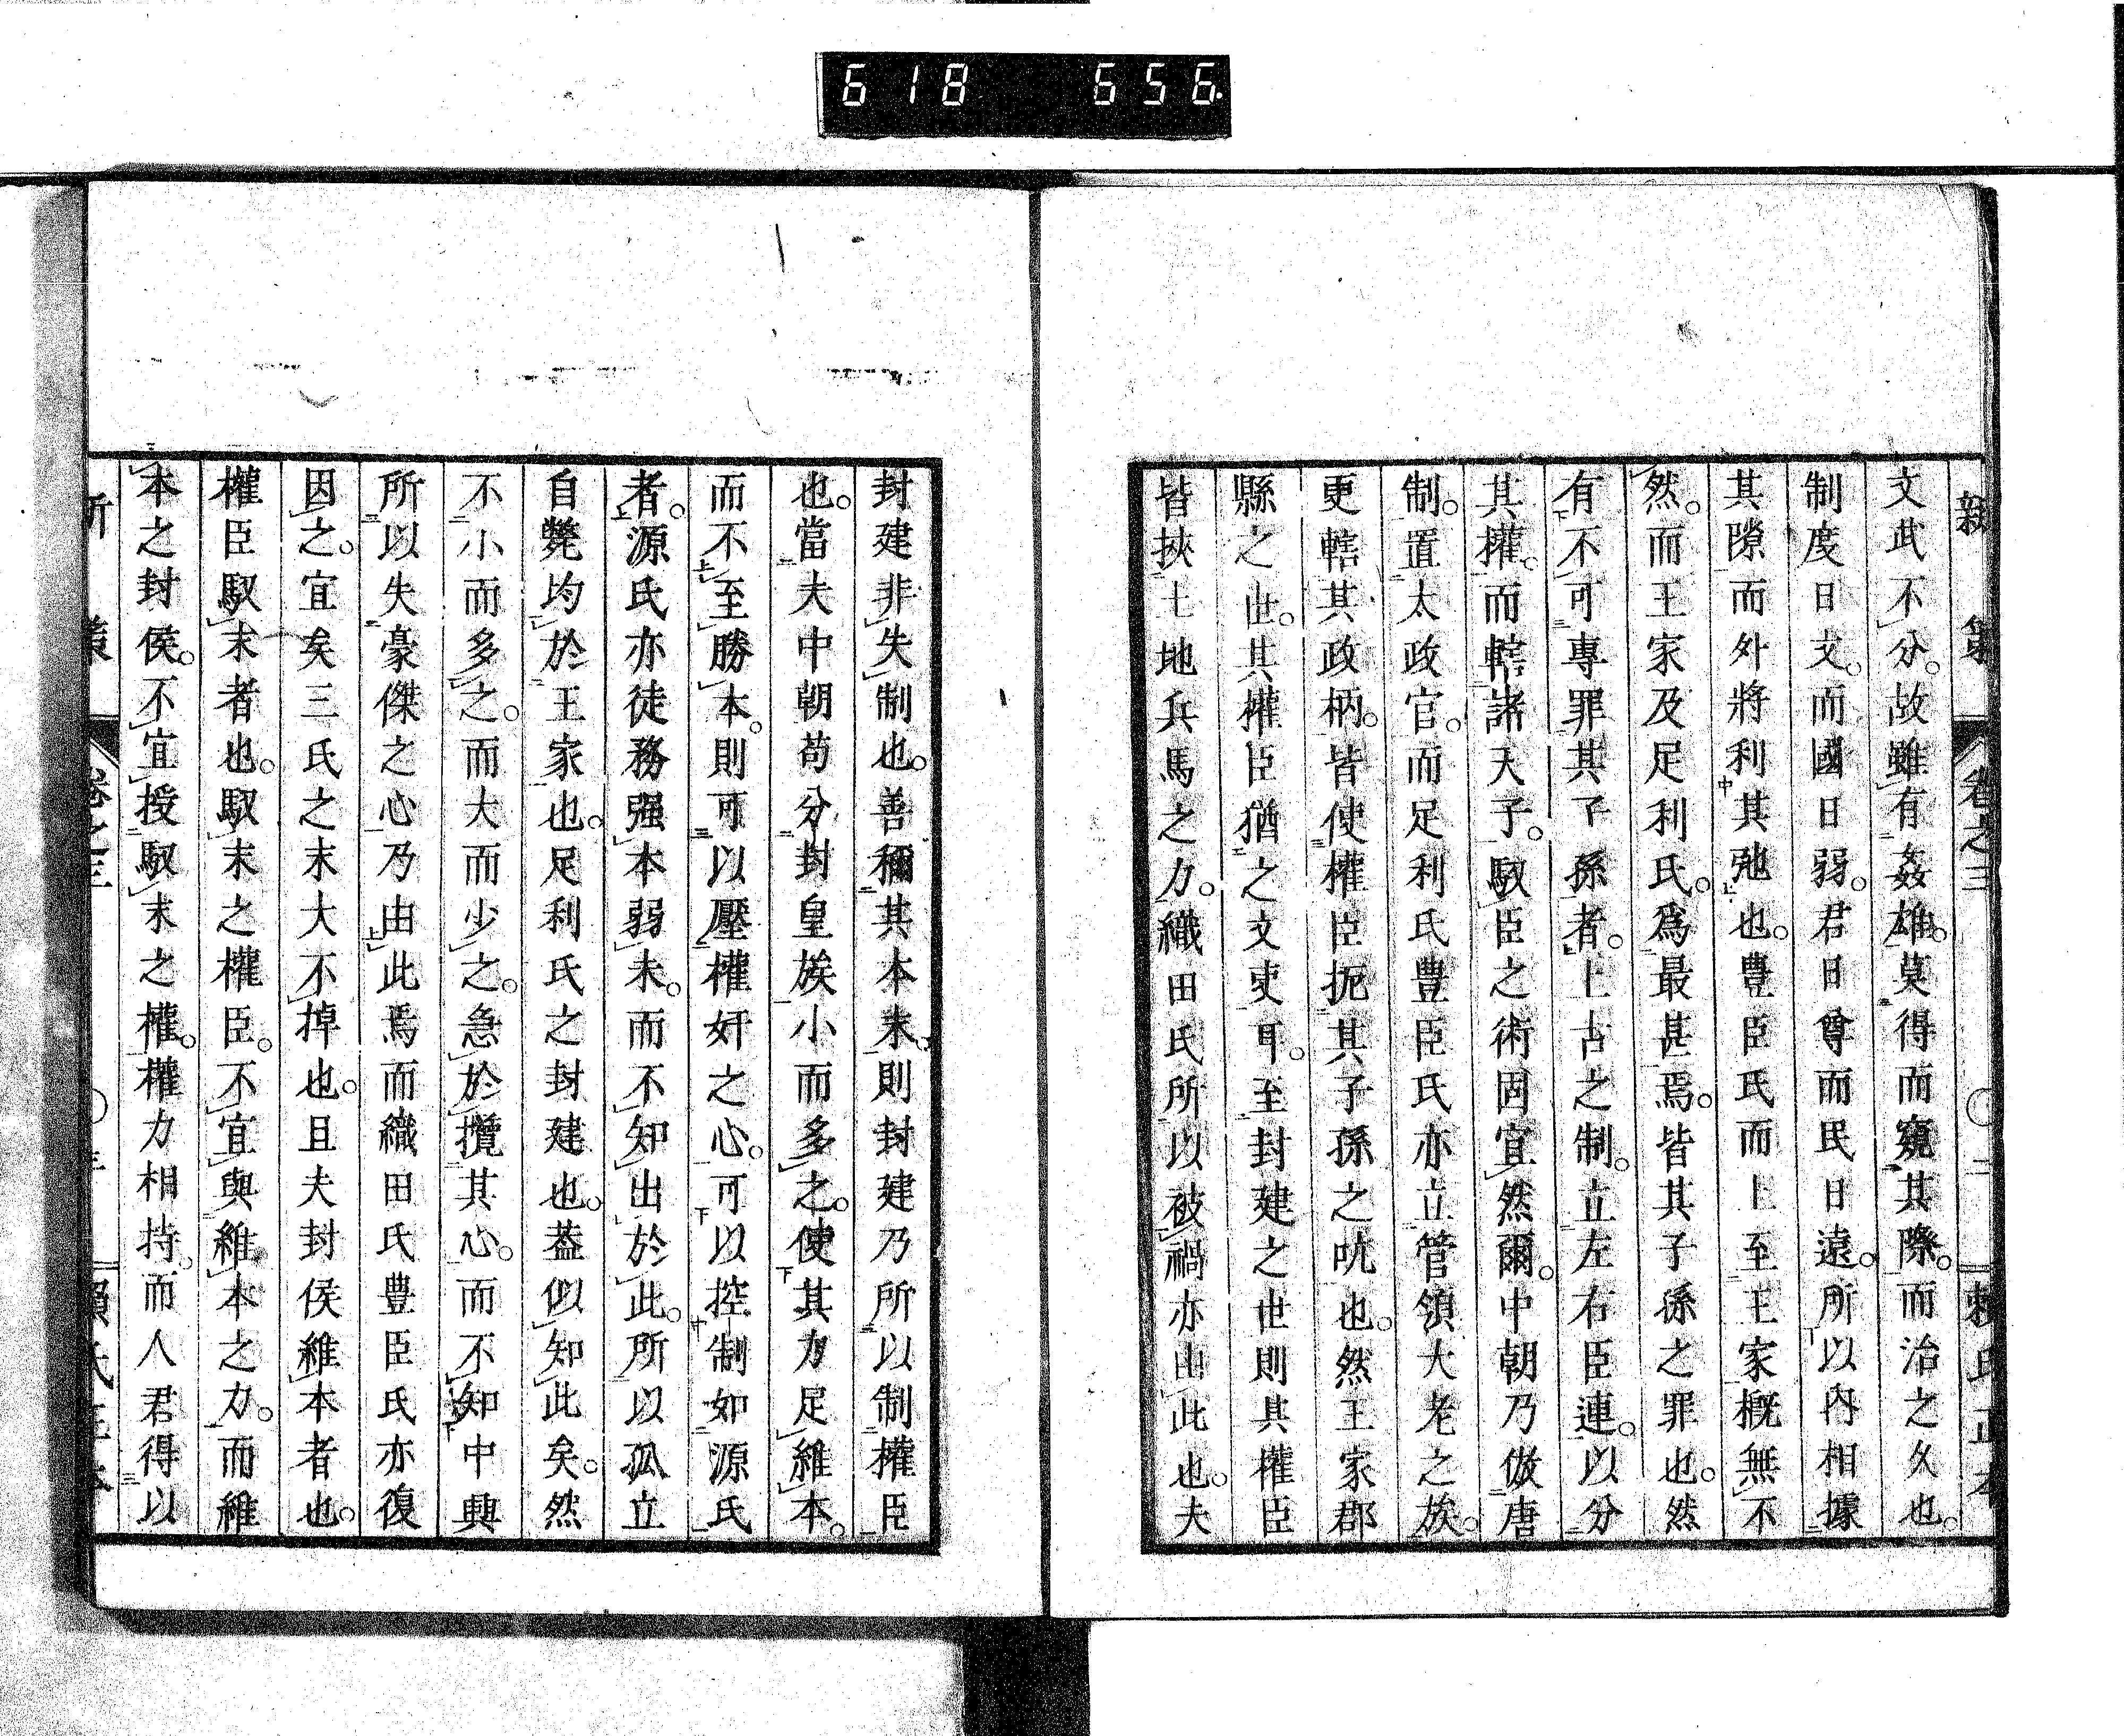 618 656
新策 卷之三 ○二 賴氏正本
文武不分。故雖有姦雄。莫得而窺其際。而治之久也。
制度日文。而國日弱。君日尊而民日遠。所以內相據
其隙而外將利其弛也。豐臣氏而上至王家。概無不
然。而王家及足利氏。為最甚焉。皆其子孫之罪也。然
有不可專罪其子孫者。上古之制。立左右臣連。以分
其權。而轄諸天子。馭臣之術固宜然爾。中朝乃倣唐
制。置太政官。而足利氏豐臣氏亦立管領大老之族。
更轄其政柄。皆使權臣扼其子孫之吭也。然王家郡
縣之世。其權臣猶之文吏耳。至封建之世則其權臣
皆挾土地兵馬之力。織田氏所以被禍亦由此也。夫
封建非失制也。善稱其本末。則封建乃所以制權臣
也。當夫中朝苟分封皇族小而多之。使其力足維本。
而不至勝本。則可以壓權奸之心。可以控制如源氏
者。源氏亦徒務强本弱末。而不知出於此。所以孤立
自斃均於王家也。足利氏之封建也。蓋似知此矣。然
不小而多之。而大而少之。急於攬其心。而不知中興
所以失豪傑之心乃由此焉而織田氏豐臣氏亦復
因之。宜矣三氏之末大不掉也。且夫封侯維本者也。
權臣馭末者也。馭末之權臣。不宜與維本之力。而維
本之封侯。不宜授馭末之權。權力相持。而人君得以
新策 卷之三 ○ 賴氏正本